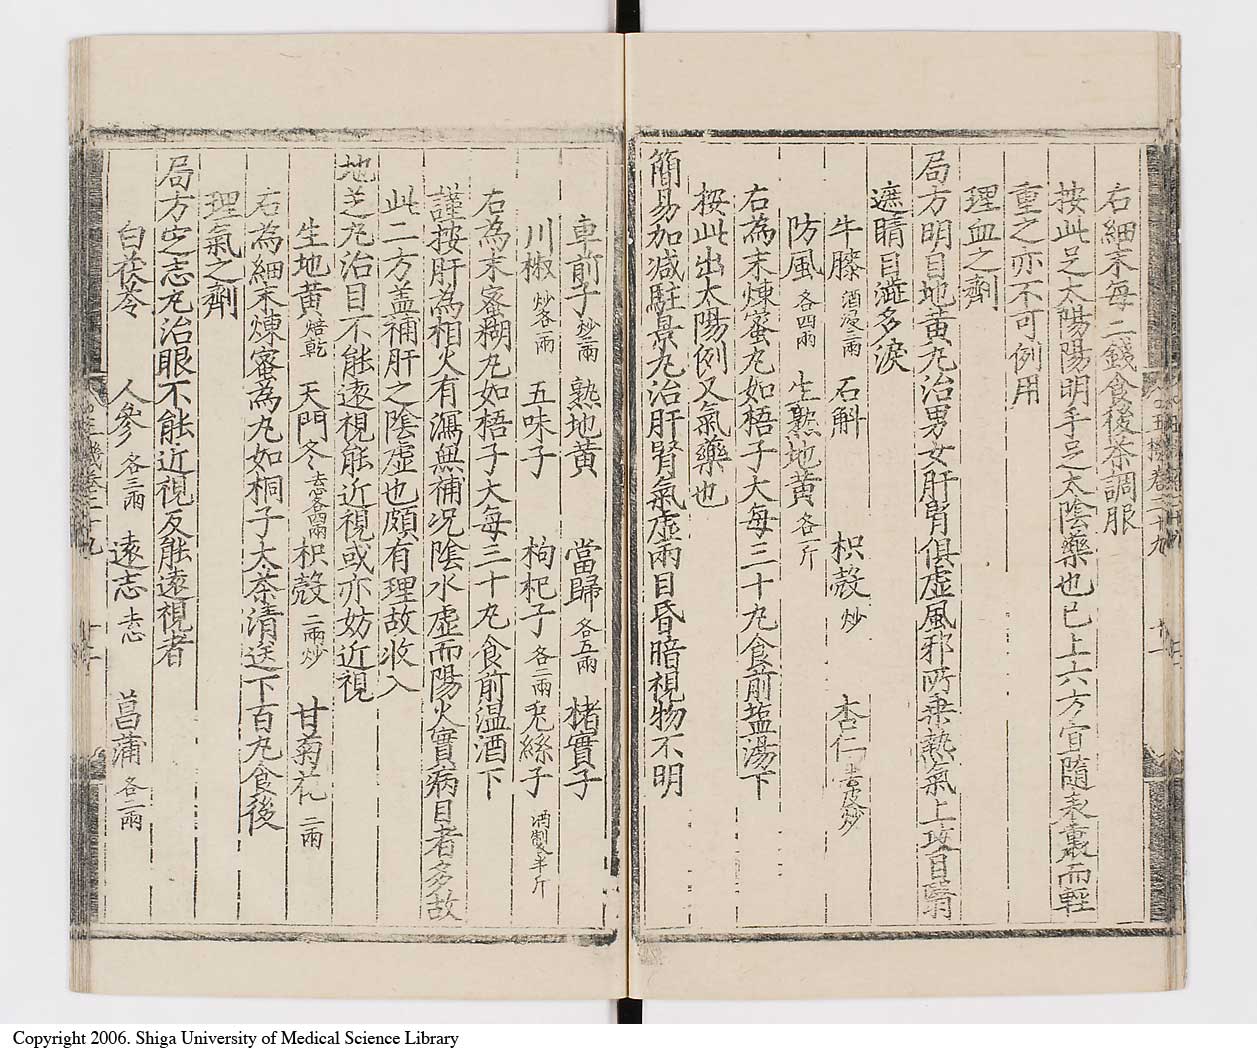 右細末每二錢食後茶調服
按此足太陽陽明手足太陰藥也已上六方宜隨表裏而輕
重之亦不可例用
理血之劑
局方明目地黃丸治男女肝腎俱虛風邪所乘熱氣上攻目翳
遮睛目澁多淚
牛膝酒浸三兩 石斛 枳殼炒 杏仁去皮炒
防風各四兩 生熟地黃各一斤
右為末煉蜜丸如梧子大每三十丸食前塩湯下
按此出太陽例又氣藥也
簡易加減駐景丸治肝腎氣虛兩目昏暗視物不明
車前子炒二兩 熟地黃 當歸各五兩 楮實子
川椒炒各一兩 五味子 枸杞子各二兩 兔絲子酒製半斤
右為末蜜糊丸如梧子大每三十丸食前温酒下
謹按肝為相火有瀉無補况陰水虛而陽火實病目者多故
此二方盖補肝之陰虛也頗有理故收入
地芝丸治目不能遠視能近視或亦妨近視
生地黃焙乾 天門冬去心各四兩 枳殼二兩炒 甘菊花二兩
右為細末煉蜜為丸如桐子大茶清送下百丸食後
理氣之劑
局方定志丸治眼不能近視反能遠視者
白茯苓 人參各三兩 遠志去心 菖蒲各二兩
Copyright 2006. Shiga University of Medical Science Library